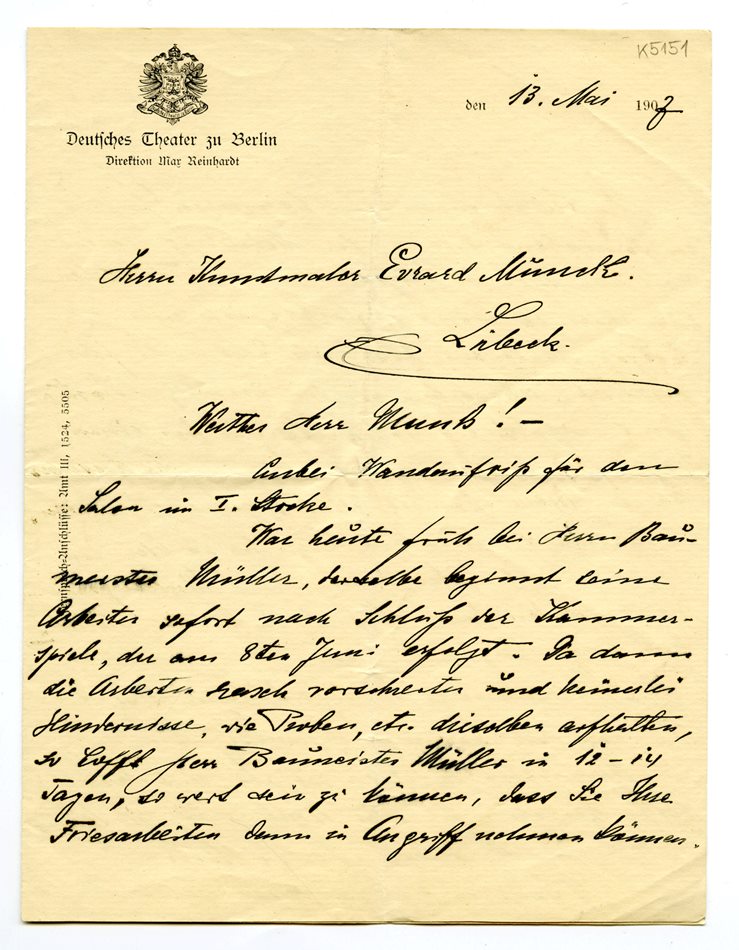 K5151
den 13. Mai 1907
Deutsches Theater zu Berlin
Direktion Max Reinhardt
Herrn Kunstmaler Evrard Munck.
Lübeck.
Fernsprech-Anschlüsse: Amt III, 1524, 5505
Werther Herr Munk! –
Anbei Wandaufriß für den
Salon im I. Stocke.
War heute früh bei Herrn Bau-
meister Müller, derselbe beginnt seine
Arbeiten sofort nach Schluß der Kammer-
spiele, der am 8ten Juni erfolgt. Da dann
die Arbeiten rasch vorschreiten und keinerlei
Hindernisse, wie Proben, etc. dieselben aufhalten,
so hofft Herr Baumeister Müller in 12–14
Tagen, so weit sein zu können, dass Sie Ihre
Friesarbeiten dann in Angriff nehmen können.